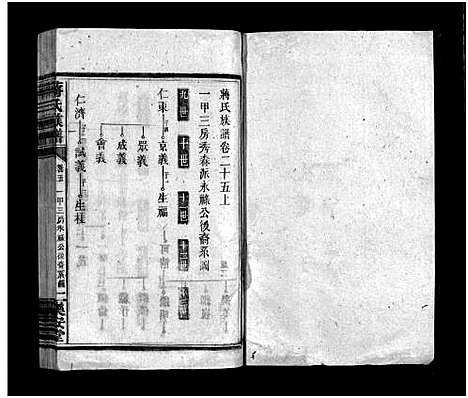 蔣氏族譜卷二十五上
一甲三房秀春派永祿公後裔系圖
九世 十世 十一世 十二世 十三世
仁東 京義 生福
景義
成義
會義
仁濟 試義 生桂
蔣氏族譜 卷二五 一甲三房永祿公後裔系圖 一